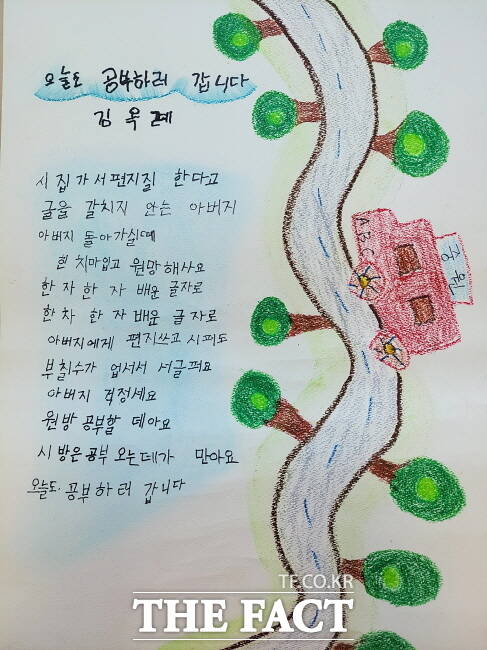 오늘도 공부하러 갑니다
김옥례
시집가서 편지질 한다고
글을 갈치지 안는 아버지
아버지 돌아가실때
흰 치마입고 원망해사요
한 자 한 자 배운 글자로
한 자 한 자 배운 글자로
아버지에게 편지쓰고 시퍼도
부칠수가 업서서 서글퍼요
아버지 걱정세요
원방 공부할 데아요
시방은 공부 오는데가 만아요
오늘도 공부하러 갑니다
ABC
공원
TF.CO.KR
THE FACT